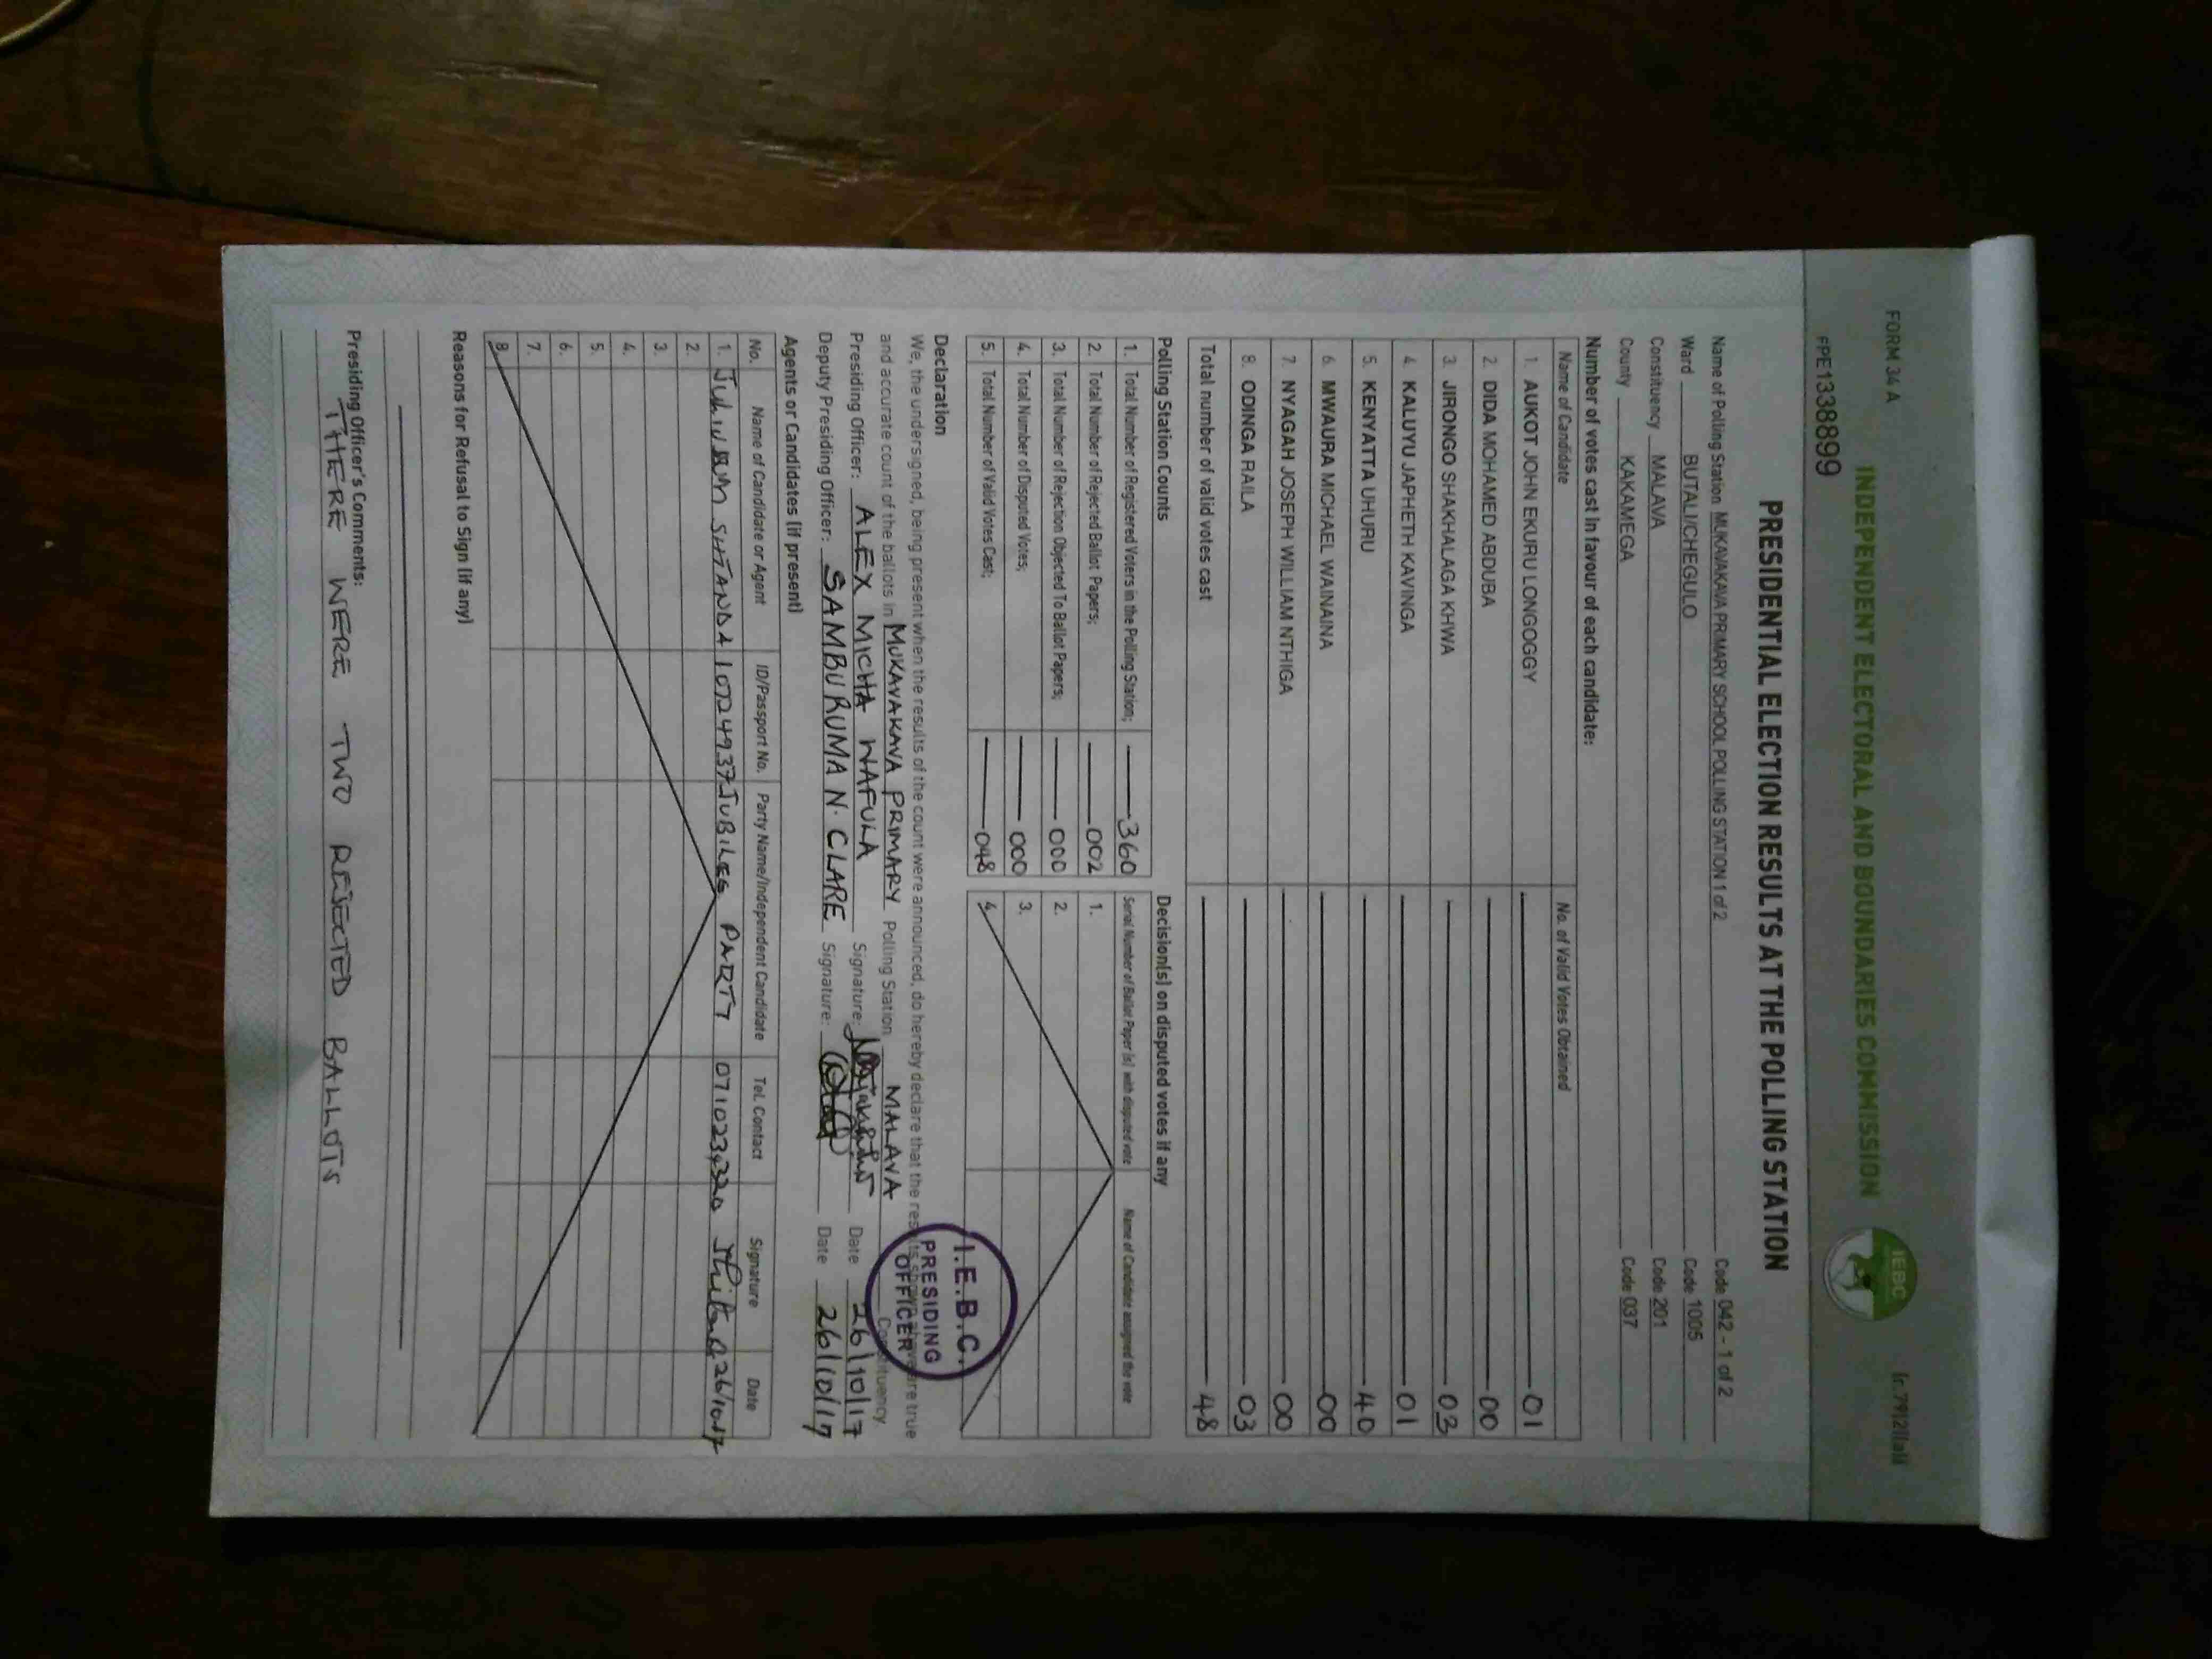 FORM 34 A
(r.79(2)(a))
INDEPENDENT ELECTORAL AND BOUNDARIES COMMISSION
IEBC
PPE1338899
PRESIDENTIAL ELECTION RESULTS AT THE POLLING STATION
Name of Polling Station MUKAVAKAVA PRIMARY SCHOOL POLLING STATION 1 of 2 Code 042 - 1 of 2
Ward BUTALI/CHEGULO Code 1005
Constituency MALAVA Code 201
County KAKAMEGA Code 037
Number of votes cast in favour of each candidate:
Name of Candidate No. of Valid Votes Obtained
1. AUKOT JOHN EKURU LONGOGGY 01
2. DIDA MOHAMED ABDUBA 00
3. JIRONGO SHAKHALAGA KHWA 03
4. KALUYU JAPHETH KAVINGA 01
5. KENYATTA UHURU 40
6. MWAURA MICHAEL WAINAINA 00
7. NYAGAH JOSEPH WILLIAM NTHIGA 00
8. ODINGA RAILA 03
Total number of valid votes cast 48
Polling Station Counts
1. Total Number of Registered Voters in the Polling Station; 360
2. Total Number of Rejected Ballot Papers; 002
3. Total Number of Rejection Objected To Ballot Papers; 000
4. Total Number of Disputed Votes; 000
5. Total Number of Valid Votes Cast; 048
Decision(s) on disputed votes if any
Serial Number of Ballot Paper (s) with disputed vote Name of Candidate assigned the vote
1.
2.
3.
4.
Declaration
We, the undersigned, being present when the results of the count were announced, do hereby declare that the results shown above are true
and accurate count of the ballots in MUKAVAKAVA PRIMARY Polling Station MALAVA Constituency
Presiding Officer: ALEX MICHA WAFULA Signature: Date 26/10/17
Deputy Presiding Officer: SAMBU RUMA N. CLARE Signature: Date 26/10/17
I.E.B.C.
PRESIDING
OFFICER
Agents or Candidates (if present)
No. Name of Candidate or Agent ID/Passport No. Party Name/Independent Candidate Tel. Contact Signature Date
1. SHITANDA 10724937 JUBILEE PARTY 26/10/17
2.
3.
4.
5.
6.
7.
8.
Reasons for Refusal to Sign (if any)
Presiding Officer's Comments:
THERE WERE TWO REJECTED BALLOTS